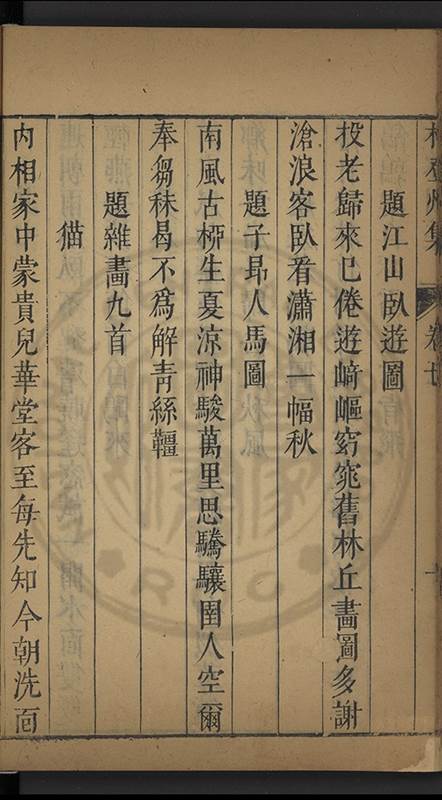 題江山臥遊圖
投老歸來已倦遊﨑嶇窈窕舊林丘畵圖多謝
滄浪客臥看瀟湘一幅秋
題子昻人馬圖
南風古栁生夏涼神駿萬里思驣驤圉人空爾
奉芻秣曷不爲解青絲韁
題雜畵九首
猫
內相家中蒙貴兒華堂客至每先知今朝洗面